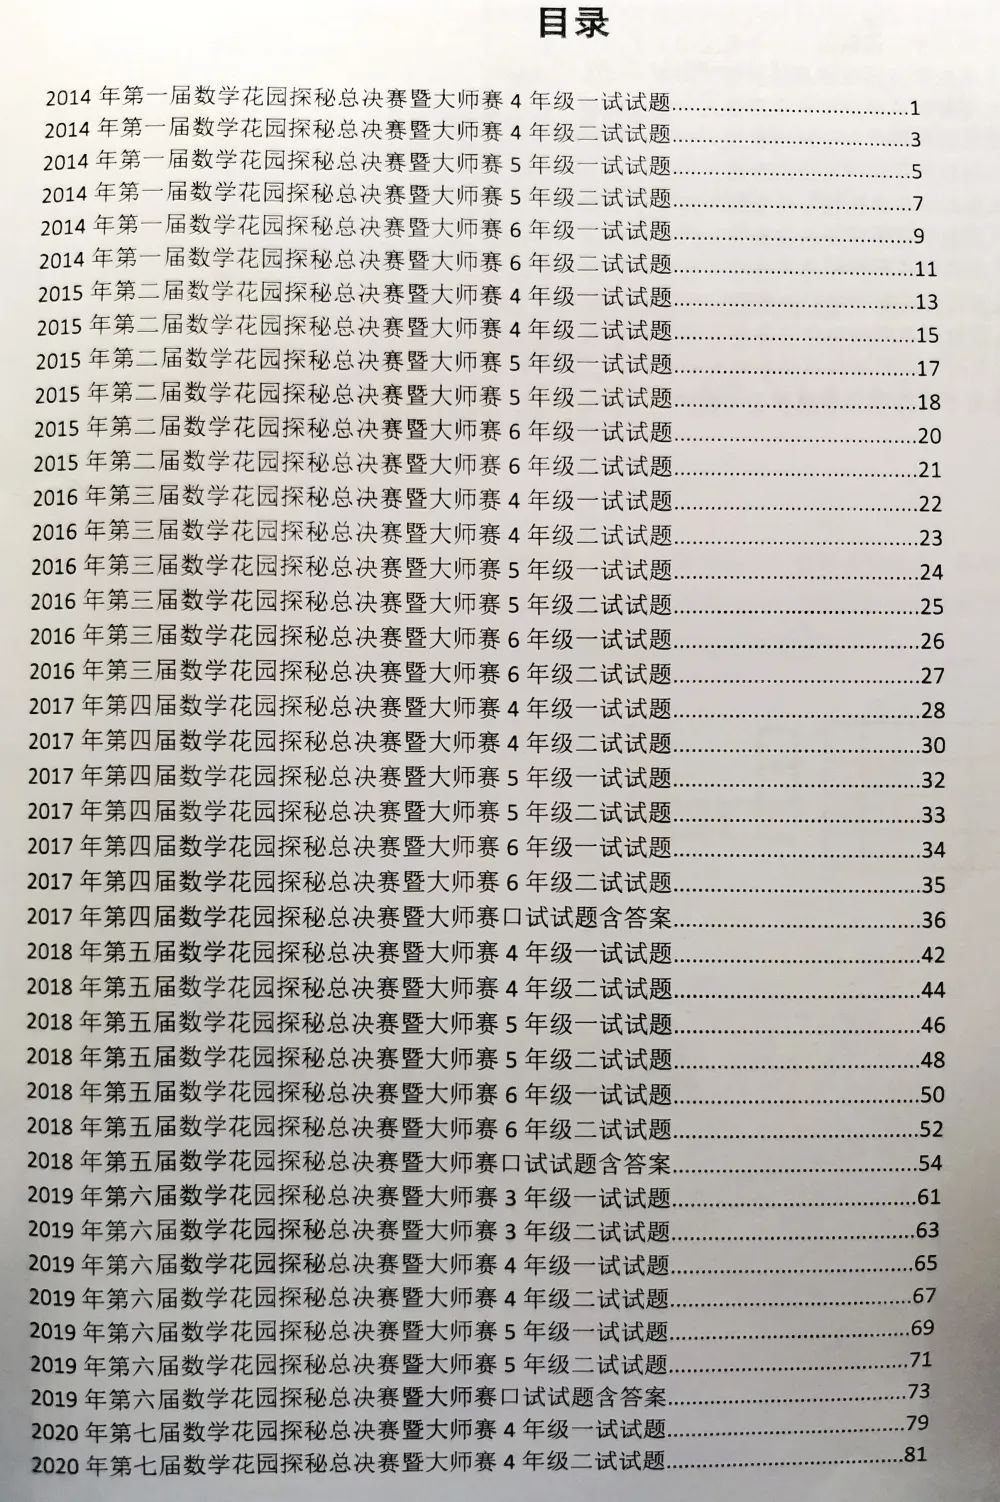 目录
2014 年第一届数学花园探秘总决赛暨大师赛 4 年级一试试题........................................1
2014 年第一届数学花园探秘总决赛暨大师赛 4 年级二试试题........................................3
2014 年第一届数学花园探秘总决赛暨大师赛 5 年级一试试题........................................5
2014 年第一届数学花园探秘总决赛暨大师赛 5 年级二试试题........................................7
2014 年第一届数学花园探秘总决赛暨大师赛 6 年级一试试题........................................9
2014 年第一届数学花园探秘总决赛暨大师赛 6 年级二试试题........................................11
2015 年第二届数学花园探秘总决赛暨大师赛 4 年级一试试题........................................13
2015 年第二届数学花园探秘总决赛暨大师赛 4 年级二试试题........................................15
2015 年第二届数学花园探秘总决赛暨大师赛 5 年级一试试题........................................17
2015 年第二届数学花园探秘总决赛暨大师赛 5 年级二试试题........................................18
2015 年第二届数学花园探秘总决赛暨大师赛 6 年级一试试题........................................20
2015 年第二届数学花园探秘总决赛暨大师赛 6 年级二试试题........................................21
2016 年第三届数学花园探秘总决赛暨大师赛 4 年级一试试题........................................22
2016 年第三届数学花园探秘总决赛暨大师赛 4 年级二试试题........................................23
2016 年第三届数学花园探秘总决赛暨大师赛 5 年级一试试题........................................24
2016 年第三届数学花园探秘总决赛暨大师赛 5 年级二试试题........................................25
2016 年第三届数学花园探秘总决赛暨大师赛 6 年级一试试题........................................26
2016 年第三届数学花园探秘总决赛暨大师赛 6 年级二试试题........................................27
2017 年第四届数学花园探秘总决赛暨大师赛 4 年级一试试题........................................28
2017 年第四届数学花园探秘总决赛暨大师赛 4 年级二试试题........................................30
2017 年第四届数学花园探秘总决赛暨大师赛 5 年级一试试题........................................32
2017 年第四届数学花园探秘总决赛暨大师赛 5 年级二试试题........................................33
2017 年第四届数学花园探秘总决赛暨大师赛 6 年级一试试题........................................34
2017 年第四届数学花园探秘总决赛暨大师赛 6 年级二试试题........................................35
2017 年第四届数学花园探秘总决赛暨大师赛口试试题含答案........................................36
2018 年第五届数学花园探秘总决赛暨大师赛 4 年级一试试题........................................42
2018 年第五届数学花园探秘总决赛暨大师赛 4 年级二试试题........................................44
2018 年第五届数学花园探秘总决赛暨大师赛 5 年级一试试题........................................46
2018 年第五届数学花园探秘总决赛暨大师赛 5 年级二试试题........................................48
2018 年第五届数学花园探秘总决赛暨大师赛 6 年级一试试题........................................50
2018 年第五届数学花园探秘总决赛暨大师赛 6 年级二试试题........................................52
2018 年第五届数学花园探秘总决赛暨大师赛口试试题含答案........................................54
2019 年第六届数学花园探秘总决赛暨大师赛 3 年级一试试题........................................61
2019 年第六届数学花园探秘总决赛暨大师赛 3 年级二试试题........................................63
2019 年第六届数学花园探秘总决赛暨大师赛 4 年级一试试题........................................65
2019 年第六届数学花园探秘总决赛暨大师赛 4 年级二试试题........................................67
2019 年第六届数学花园探秘总决赛暨大师赛 5 年级一试试题........................................69
2019 年第六届数学花园探秘总决赛暨大师赛 5 年级二试试题........................................71
2019 年第六届数学花园探秘总决赛暨大师赛口试试题含答案........................................73
2020 年第七届数学花园探秘总决赛暨大师赛 4 年级一试试题........................................79
2020 年第七届数学花园探秘总决赛暨大师赛 4 年级二试试题........................................81